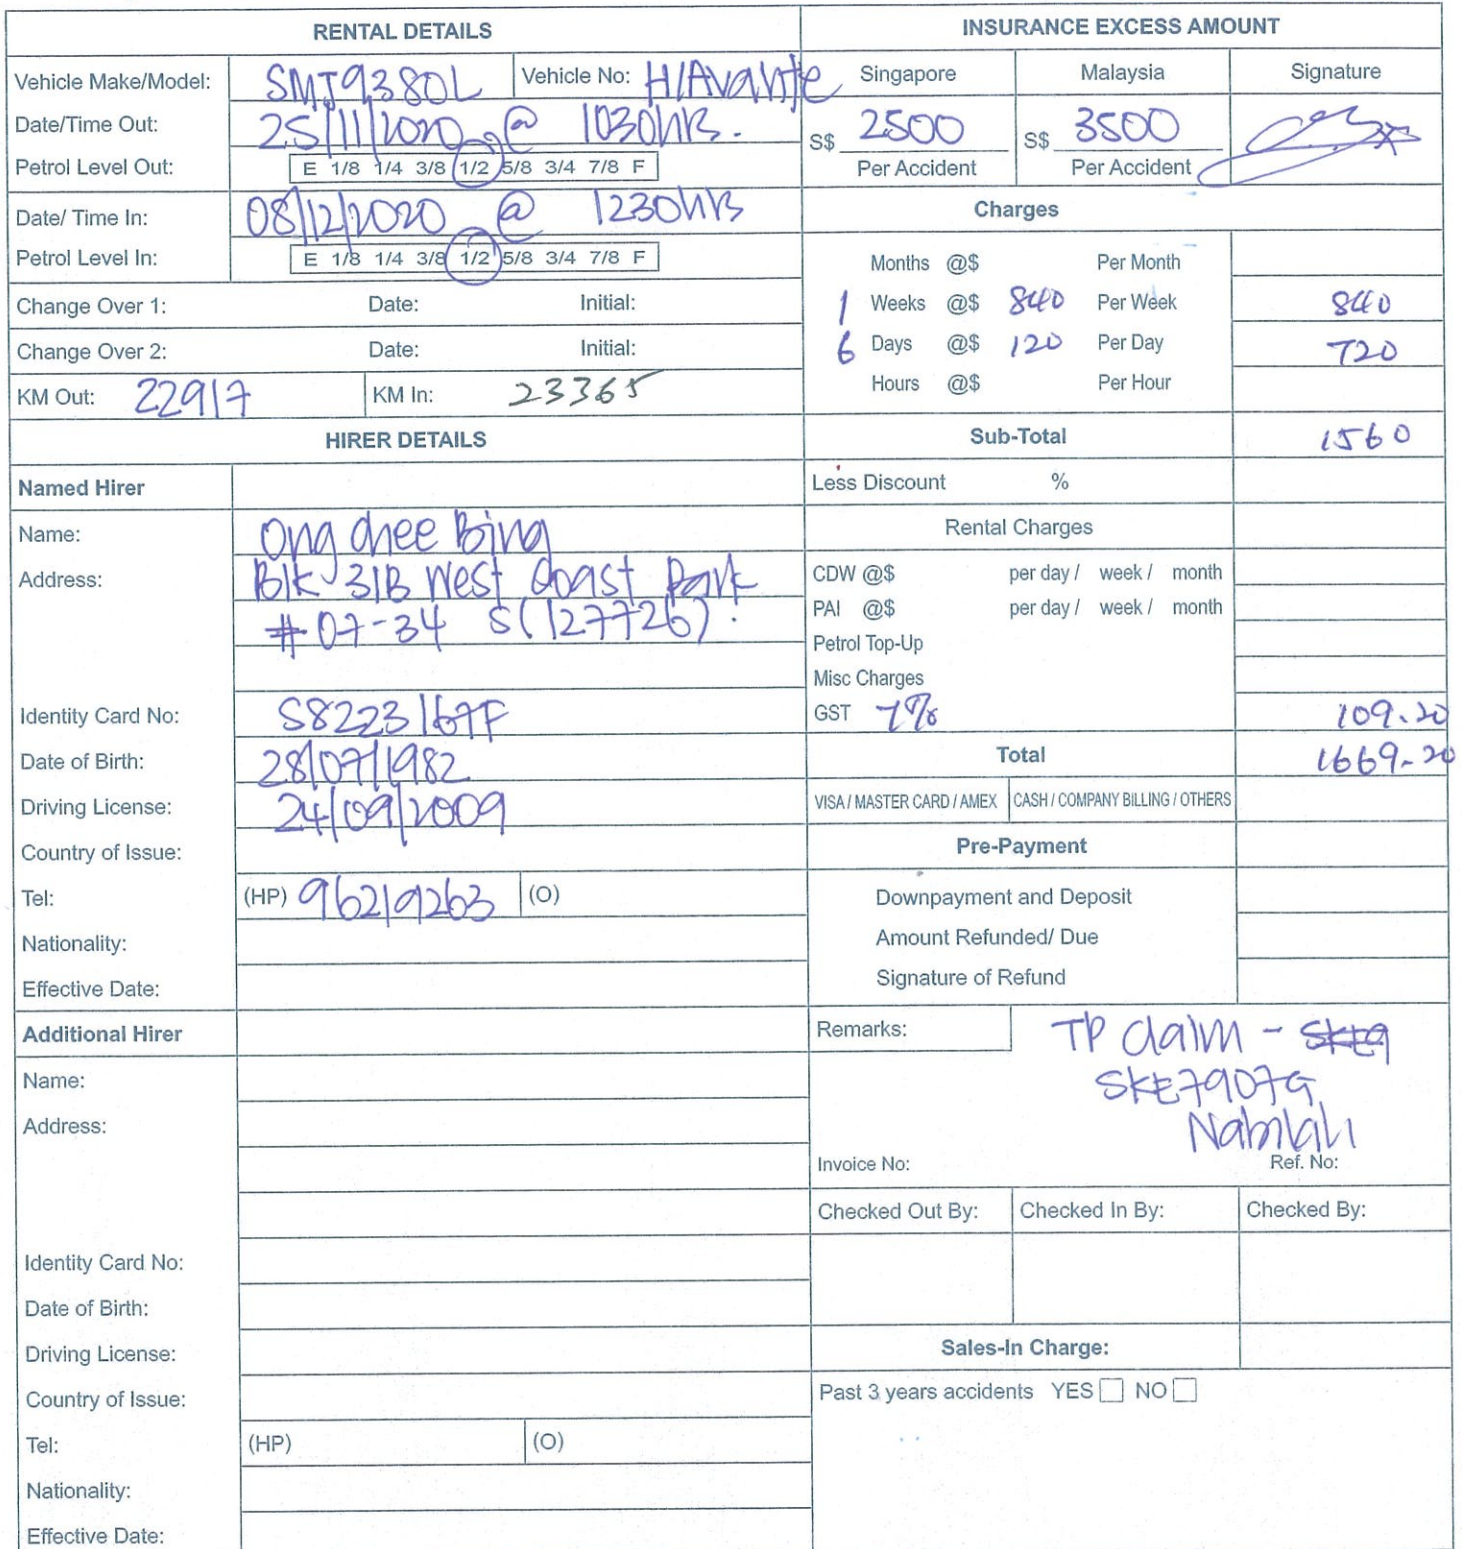 RENTAL DETAILS
Vehicle Make/Model: SMJ9380L Vehicle No: H/Avante
Date/Time Out: 25/11/2020 @ 1030hrs.
Petrol Level Out: E 1/8 1/4 3/8 1/2 5/8 3/4 7/8 F
Date/ Time In: 08/12/2020 @ 1230hrs
Petrol Level In: E 1/8 1/4 3/8 1/2 5/8 3/4 7/8 F
Change Over 1: Date: Initial:
Change Over 2: Date: Initial:
KM Out: 22917 KM In: 23365
HIRER DETAILS
Named Hirer
Name: Ong Chee Bing
Address: Blk 31B West Coast Park
#07-34 S(127726).
Identity Card No: S8223167F
Date of Birth: 28/07/1982
Driving License: 24/09/2009
Country of Issue:
Tel: (HP) 96219263 (O)
Nationality:
Effective Date:
Additional Hirer
Name:
Address:
Identity Card No:
Date of Birth:
Driving License:
Country of Issue:
Tel: (HP) (O)
Nationality:
Effective Date:
INSURANCE EXCESS AMOUNT
Singapore Malaysia Signature
S$ 2500 S$ 3500
Per Accident Per Accident
Charges
Months @$ Per Month
1 Weeks @$ 840 Per Week 840
6 Days @$ 120 Per Day 720
Hours @$ Per Hour
Sub-Total 1560
Less Discount %
Rental Charges
CDW @$ per day / week / month
PAI @$ per day / week / month
Petrol Top-Up
Misc Charges
GST 7% 109.20
Total 1669.20
VISA / MASTER CARD / AMEX CASH / COMPANY BILLING / OTHERS
Pre-Payment
Downpayment and Deposit
Amount Refunded/ Due
Signature of Refund
Remarks: TP claim - SKE9
SKE7907G
Invoice No: Ref. No:
Checked Out By: Checked In By: Checked By:
Sales-In Charge:
Past 3 years accidents YES NO